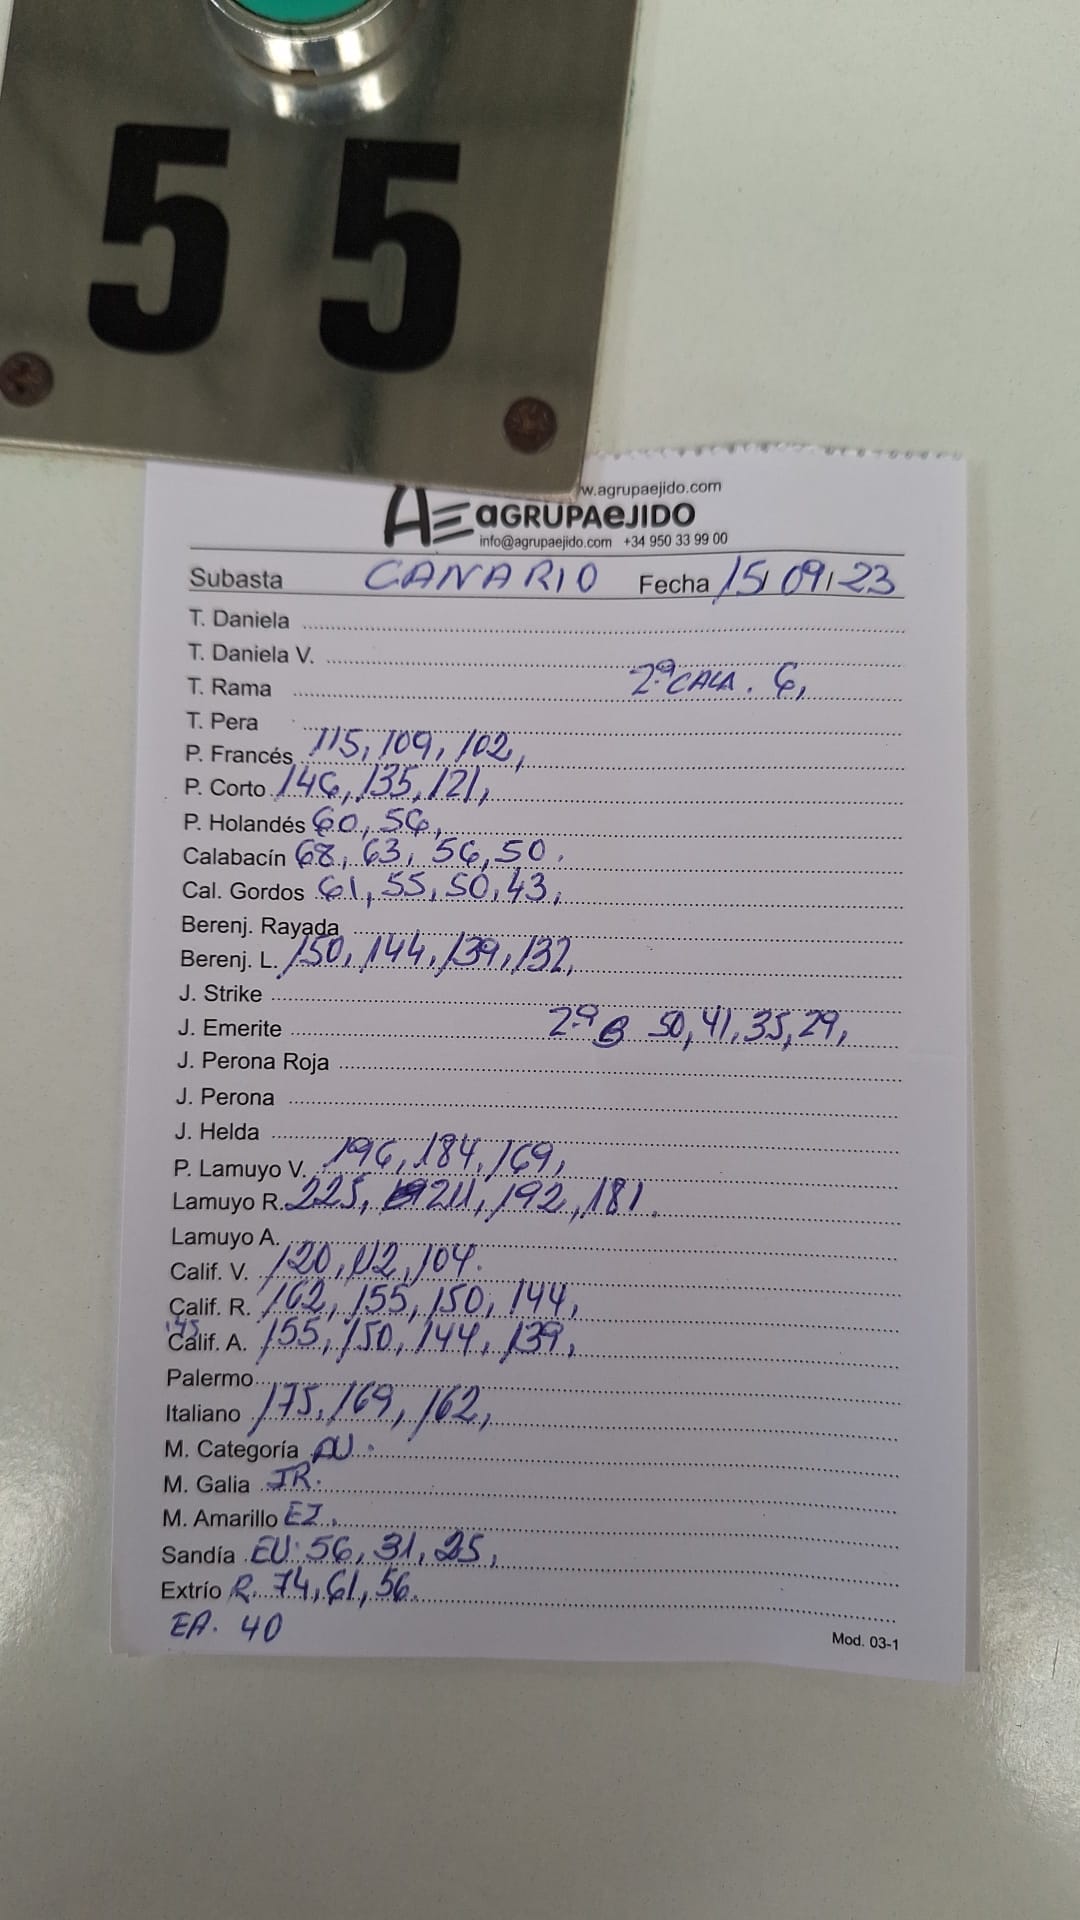 55
w.agrupaejido.com
AE aGRUPAeJIDO
info@agrupaejido.com +34 950 33 99 00
Subasta CANARIO Fecha 15/09/23
T. Daniela
T. Daniela V.
T. Rama 2ª CALA. 6,
T. Pera
P. Francés 115, 109, 102,
P. Corto 146, 135, 121,
P. Holandés 60, 56,
Calabacín 68, 63, 56, 50.
Cal. Gordos 61, 55, 50, 43,
Berenj. Rayada
Berenj. L. 150, 144, 139, 132,
J. Strike
J. Emerite 2ª B 50, 41, 35, 29,
J. Perona Roja
J. Perona
J. Helda
P. Lamuyo V. 196, 184, 169,
Lamuyo R. 225, 211, 192, 181.
Lamuyo A.
Calif. V. 120, 112, 104.
Calif. R. 162, 155, 150, 144,
Calif. A. 155, 150, 144, 139,
Palermo
Italiano 175, 169, 162,
M. Categoría AU.
M. Galia JR.
M. Amarillo EJ.
Sandía EU. 56, 31, 25,
Extrío R. 74, 61, 56.
EA. 40
Mod. 03-1